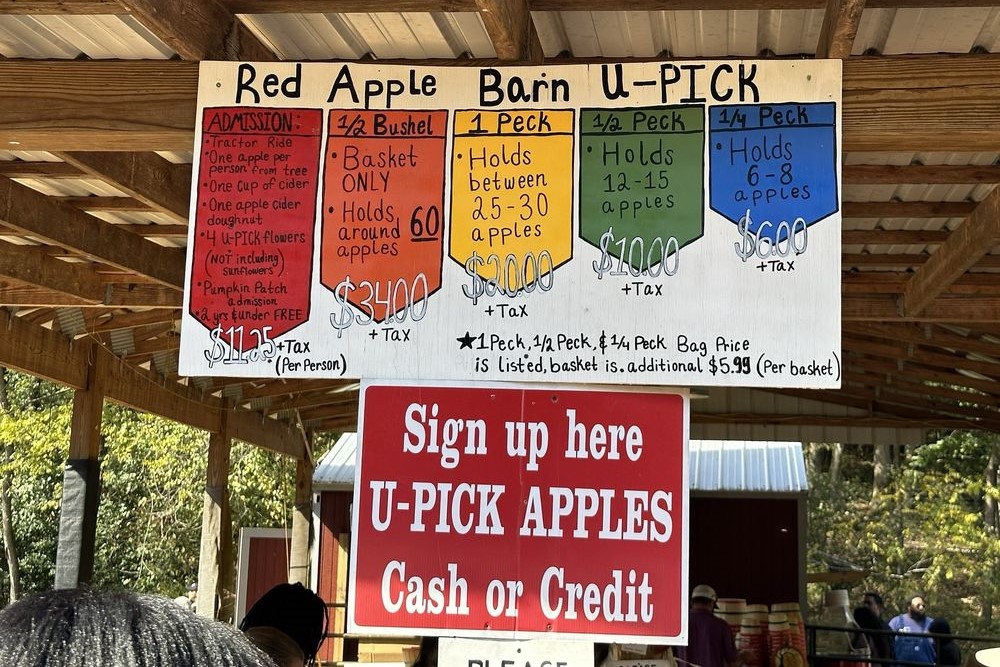 Red Apple Barn U-PICK
ADMISSION:
• Tractor Ride
• One apple per
person from tree
• One cup of cider
• One apple cider
doughnut
• 4 U-PICK flowers
(NOT including
Sunflowers)
• Pumpkin Patch
admission
• 2 yrs & under FREE
$11.25 +Tax
(Per Person)
1/2 Bushel
• Basket
ONLY
• Holds
around 60
apples
$34.00
+Tax
1 Peck
• Holds
between
25-30
apples
$20.00
+Tax
1/2 Peck
• Holds
12-15
apples
$10.00
+Tax
1/4 Peck
• Holds
6-8
apples
$6.00
+Tax
★1 Peck, 1/2 Peck, & 1/4 Peck Bag Price
is listed, basket is additional $5.99 (Per basket)
Sign up here
U-PICK APPLES
Cash or Credit
PLEASE